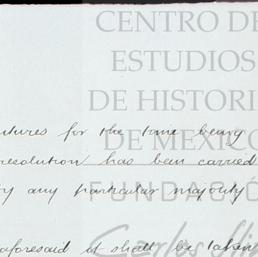 CENTRO DE
ESTUDIOS
DE HISTORI
DE MEXICO
ntures for the time being
resolution has been carried
by any particular majority
FUNDACIÓ
Carlos Sli
aforesaid it shall be taken